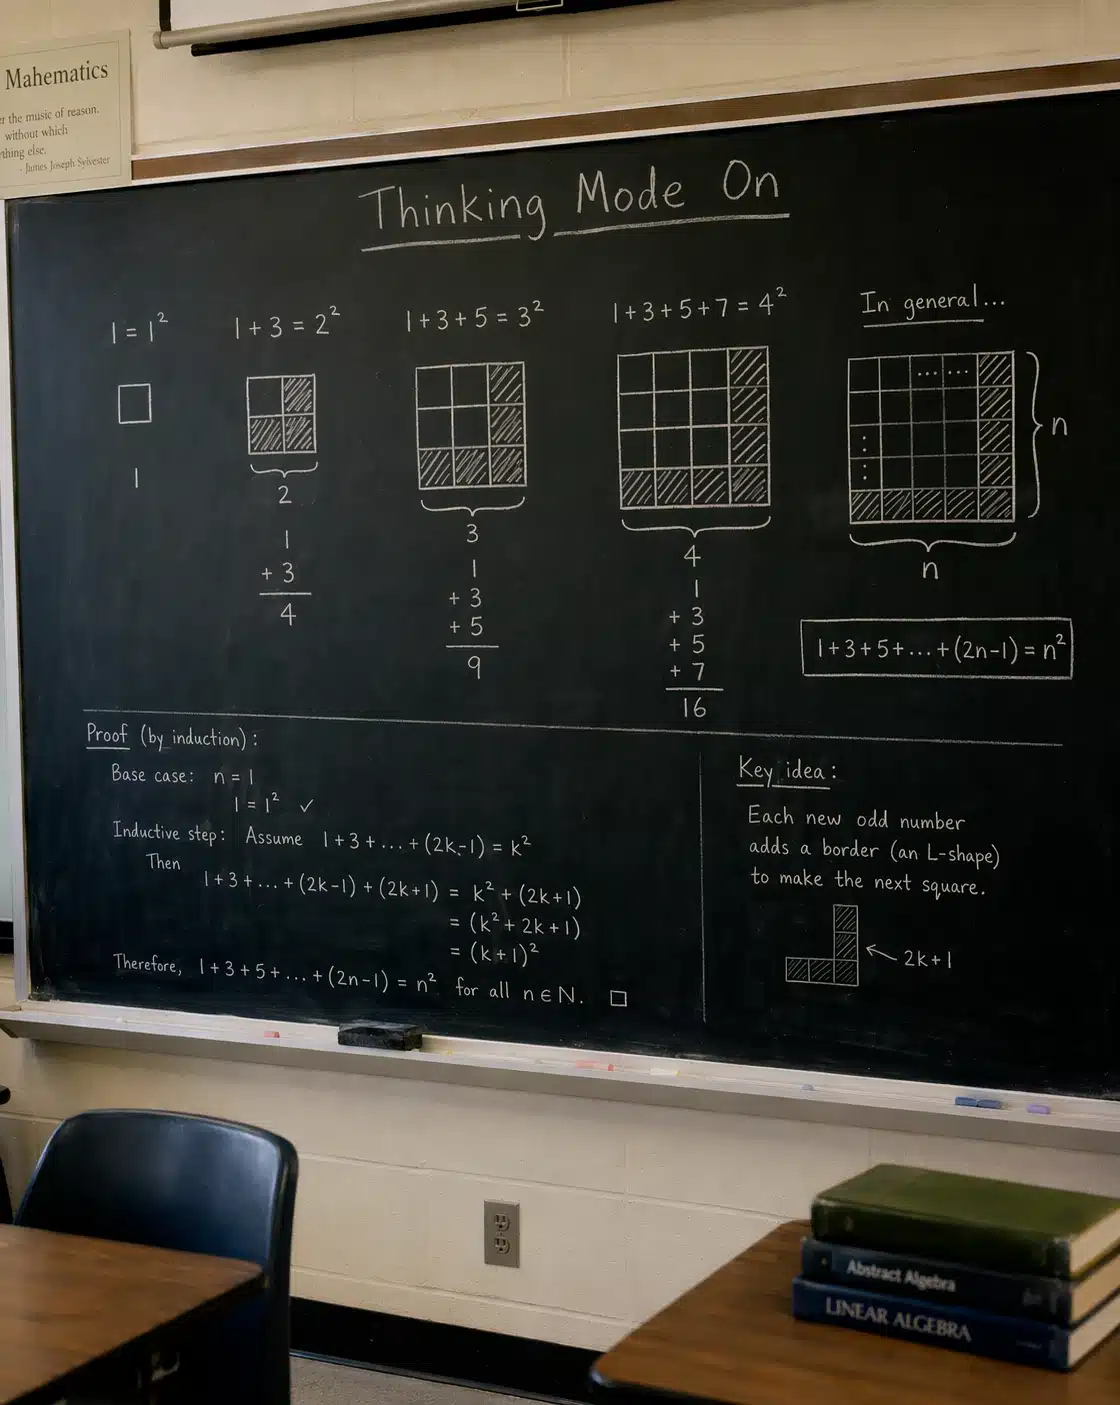 Mahematics
the music of reason.
without which
else.
- James Joseph Sylvester
Thinking Mode On
1 = 1²
1
1 + 3 = 2²
2
1
+ 3
4
1 + 3 + 5 = 3²
3
1
+ 3
+ 5
9
1 + 3 + 5 + 7 = 4²
4
1
+ 3
+ 5
+ 7
16
In general...
n
n
1 + 3 + 5 + ... + (2n-1) = n²
Proof (by induction):
Base case: n = 1
1 = 1² ✓
Inductive step: Assume 1 + 3 + ... + (2k-1) = k²
Then
1 + 3 + ... + (2k-1) + (2k+1) = k² + (2k+1)
= (k² + 2k + 1)
= (k+1)²
Therefore, 1 + 3 + 5 + ... + (2n-1) = n² for all n ∈ N. □
Key idea:
Each new odd number
adds a border (an L-shape)
to make the next square.
2k+1
Abstract Algebra
LINEAR ALGEBRA